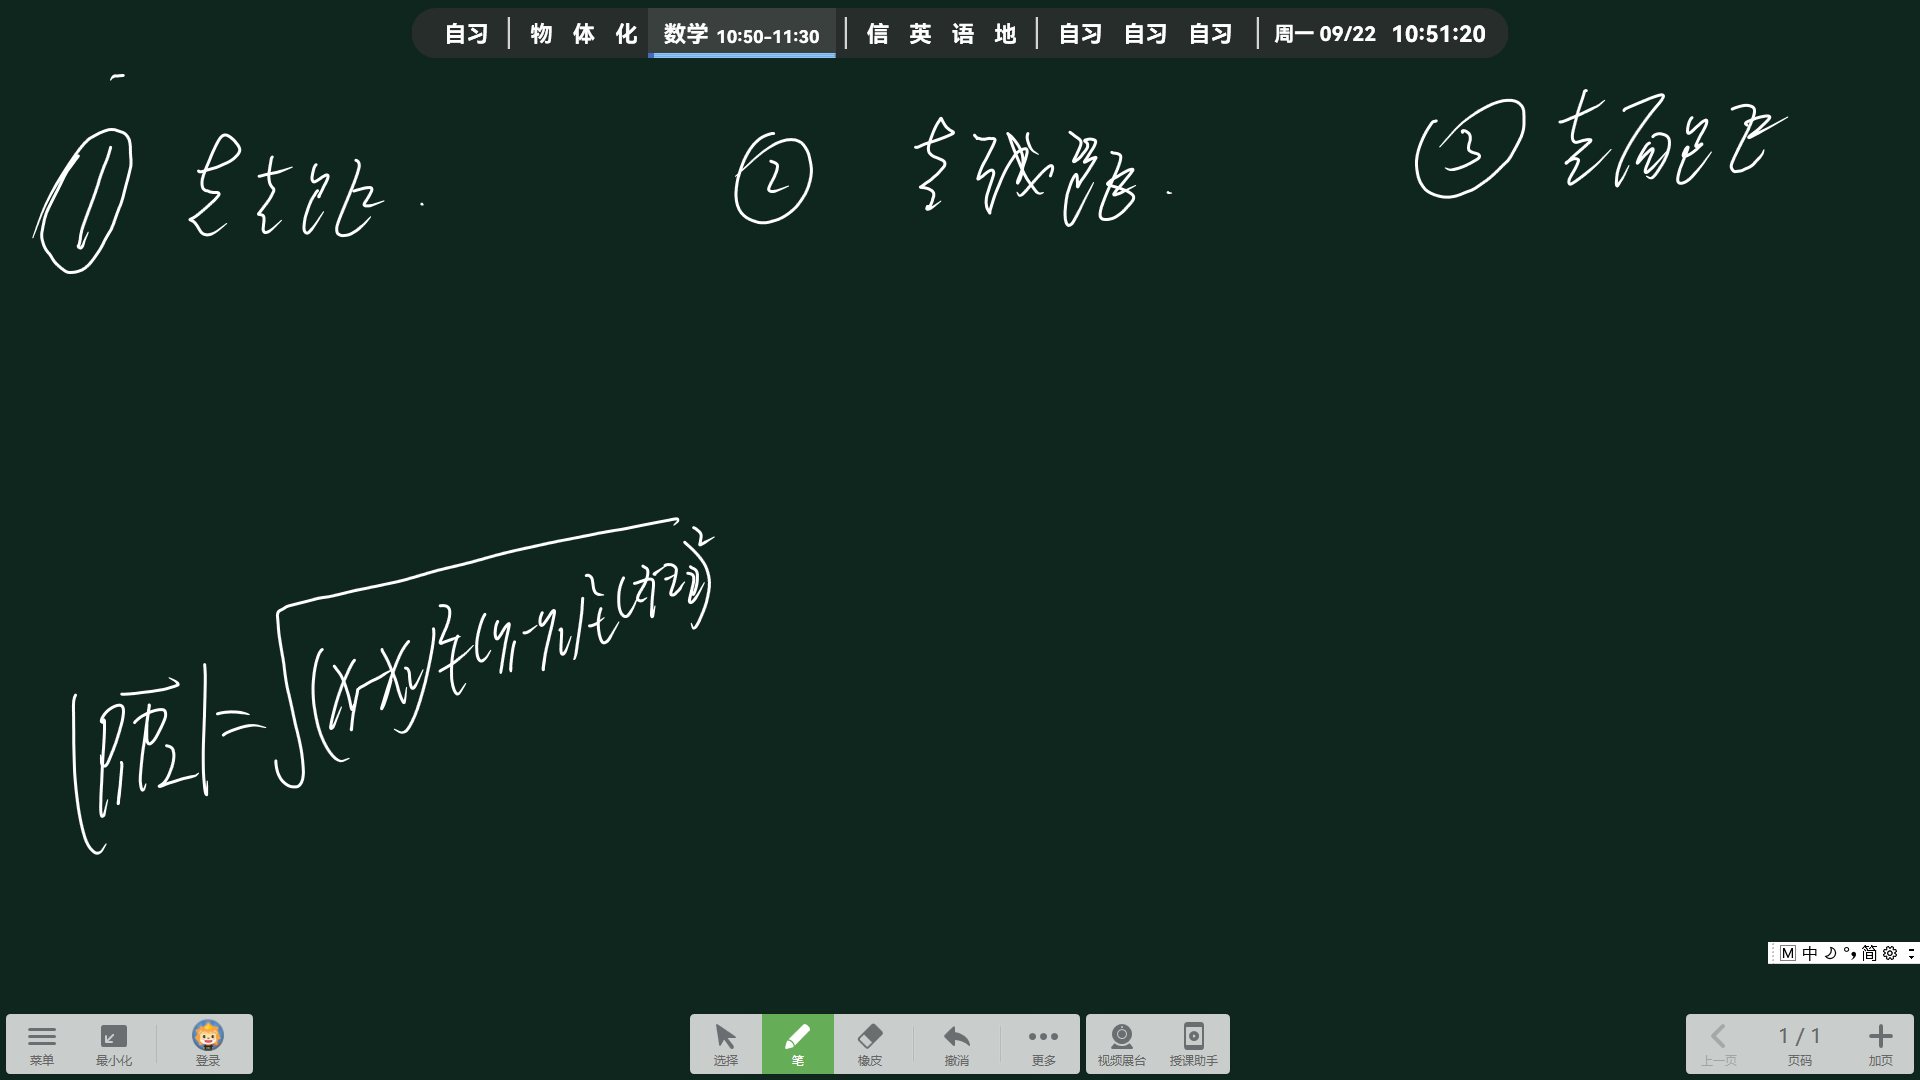 自习 物 体 化 数学 10:50-11:30 信 英 语 地 自习 自习 自习 周一 09/22 10:51:20
① 点点距. ② 点线距. ③ 点面距
|P₁P₂|=√(x₁-x₂)²+(y₁-y₂)²+(z₁-z₂)²
M 中 简
菜单 最小化 登录 选择 笔 橡皮 撤消 更多 视频展台 授课助手 上一页 1 / 1 页码 加页